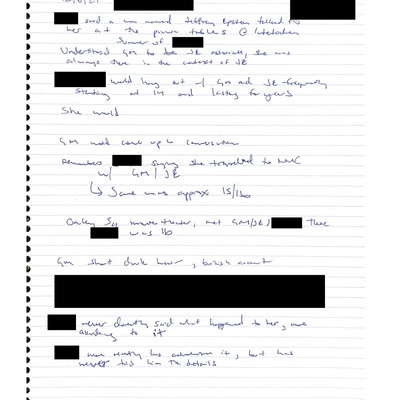 said a man named Jeffrey Epstein talked to
her at the picnic tables @ Interlochen
Summer of
Understood GM to be JE associate, she was
always there in the context of JE
would hang out w/ GM and JE frequently
starting at 14 and lasting for years
She would
GM would come up in conversation
Remembers saying she traveled to NYC
w/ GM/JE
↳ Same was approx 15/16
met GM/JE/ there
was 16
GM short dark hair, british accent
never directly said what happened to her,
to it
more recently has it, but has
never told him the details